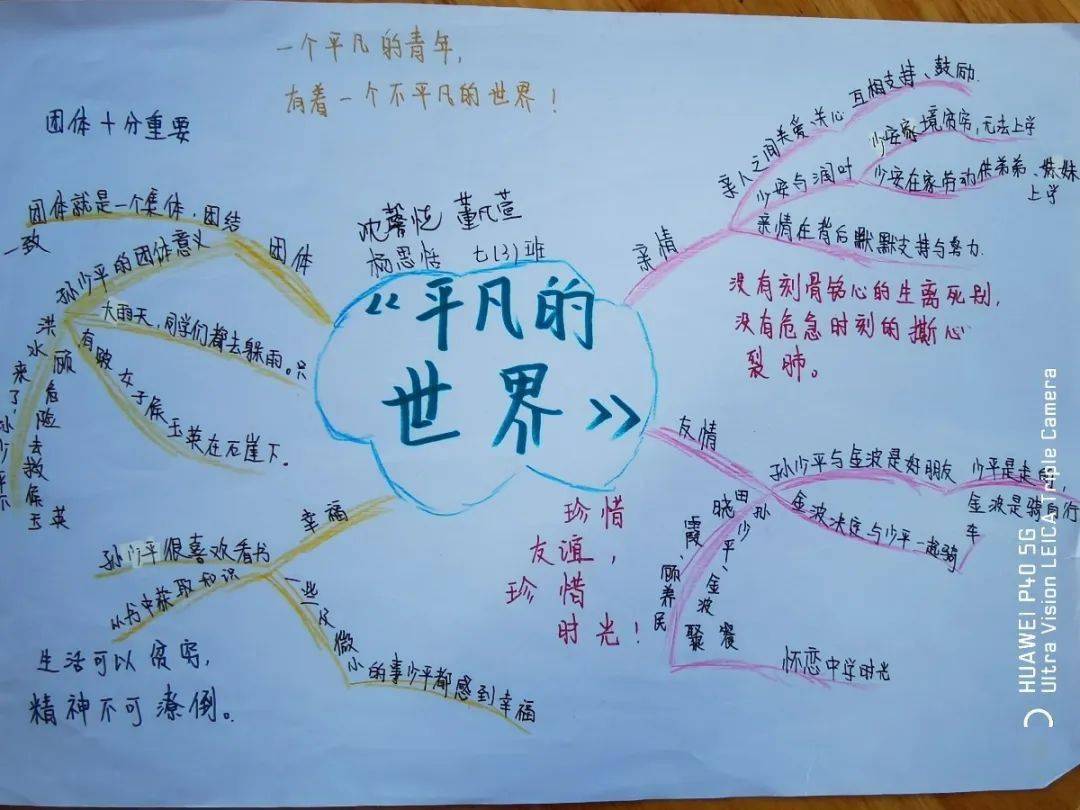 一个平凡的青年,
有着一个不平凡的世界!
团体十分重要
团体就是一个集体,团结
一致
团体
孙少平的团体意义
大雨天,同学们都去躲雨。只
有跛女子侯玉英在石崖下。
洪水来了,孙少平不
顾危险去救侯玉英
董凡萱
杨思恬 七(3)班
《平凡的
世界》
亲情
亲人之间关爱、关心
互相支持、鼓励.
少安与润叶
少安家境贫穷,无法上学
少安在家劳动供弟弟、妹妹
上学
亲情在背后默默支持与努力.
没有刻骨铭心的生离死别,
没有危急时刻的撕心
裂肺。
友情
孙少平与金波是好朋友
少平是走的,
金波是骑自行
车
金波决定与少平一起骑
田晓霞、顾养民
孙少平、金波聚餐
怀恋中学时光
珍惜
友谊,
珍惜
时光!
幸福
孙少平很喜欢看书
从书中获取知识
一些仅微小的事少平都感到幸福
生活可以贫穷,
精神不可潦倒。
HUAWEI P40 5G
Ultra Vision LEICA Triple Camera